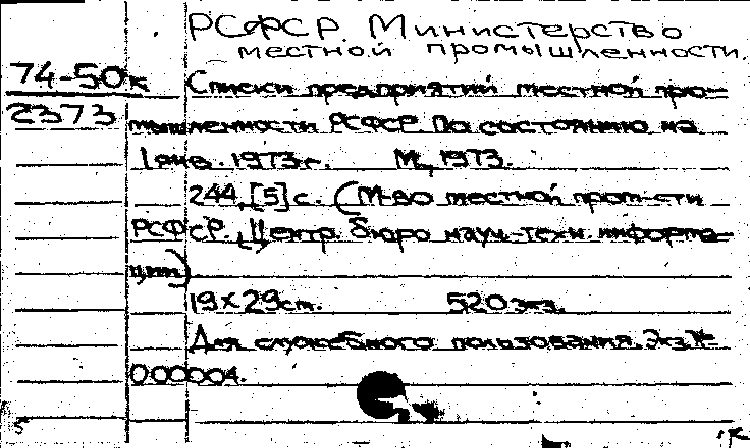 РСФСР. Министерство
местной промышленности.
74-50к Списки предприятий местной про-
2373 мышленности РСФСР по состоянию на
1 янв. 1973 г. М., 1973.
244, [5] с. (М-во местной пром-сти
РСФСР. Центр. бюро науч.-техн. информа-
ции)
19 x 29 см. 520 экз.
Для служебного пользования. Экз. №
000004.